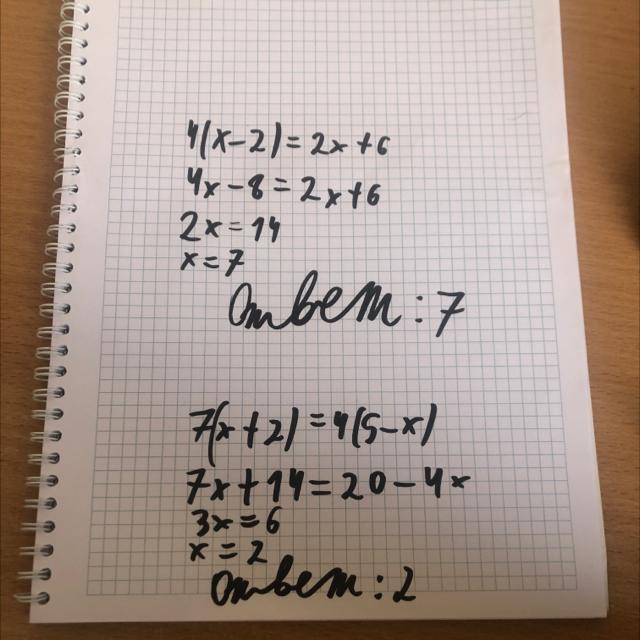 4(x-2)=2x+6
4x-8=2x+6
2x=14
x=7
Ответ: 7
7(x+2)=4(5-x)
7x+14=20-4x
3x=6
x=2
Ответ: 2